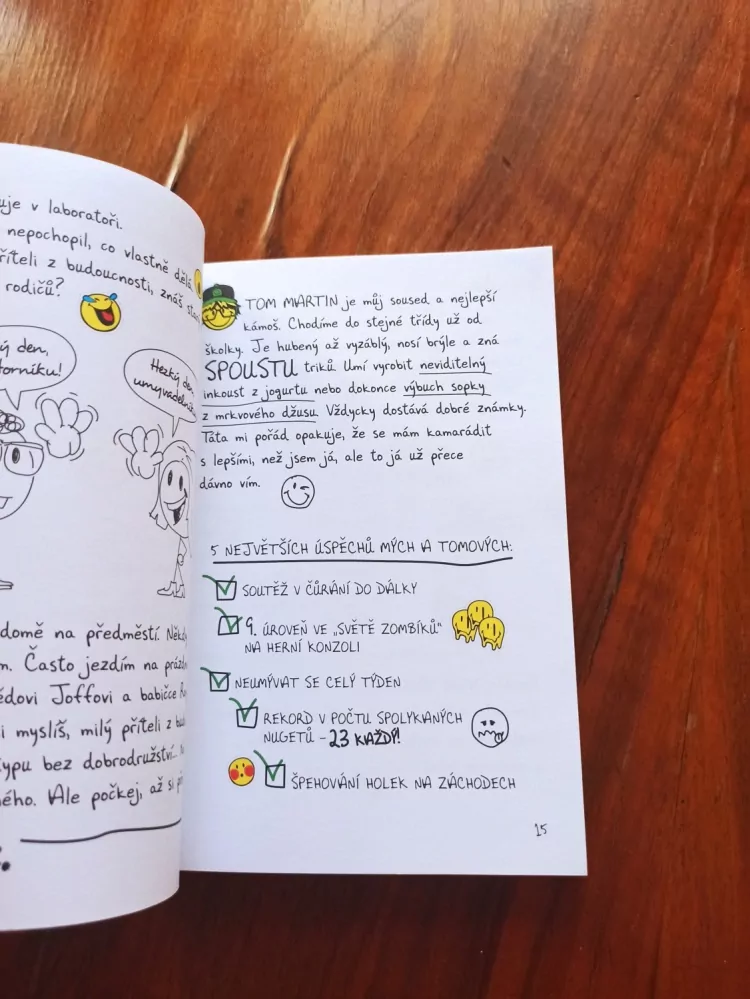 uje v laboratoři.
nepochopil, co vlastně dělá.
říteli z budoucnosti, znáš
rodičů?
ý den,
torníku!
Hezký den,
umyvadelní
domě na předměstí.
m. Často jezdím na
ědovi Joffovi a babičce
i myslíš, milý příteli z
typu bez dobrodružství.
ného. Ale počkej, až si
TOM MARTIN je můj soused a nejlepší
kámoš. Chodíme do stejné třídy už od
školky. Je hubený až vyzáblý, nosí brýle a zná
SPOUSTU triků. Umí vyrobit neviditelný
inkoust z jogurtu nebo dokonce výbuch sopky
z mrkvového džusu. Vždycky dostává dobré známky.
Táta mi pořád opakuje, že se mám kamarádit
s lepšími, než jsem já, ale to já už přece
dávno vím.
5 NEJVĚTŠÍCH ÚSPĚCHŮ MÝCH A TOMOVÝCH:
SOUTĚŽ V ČŮRÁNÍ DO DÁLKY
9. ÚROVEŇ VE „SVĚTĚ ZOMBÍKŮ“
NA HERNÍ KONZOLI
NEUMÝVAT SE CELÝ TÝDEN
REKORD V POČTU SPOLYKANÝCH
NUGETŮ – 23 KAŽDÝ!
ŠPEHOVÁNÍ HOLEK NA ZÁCHODECH
15